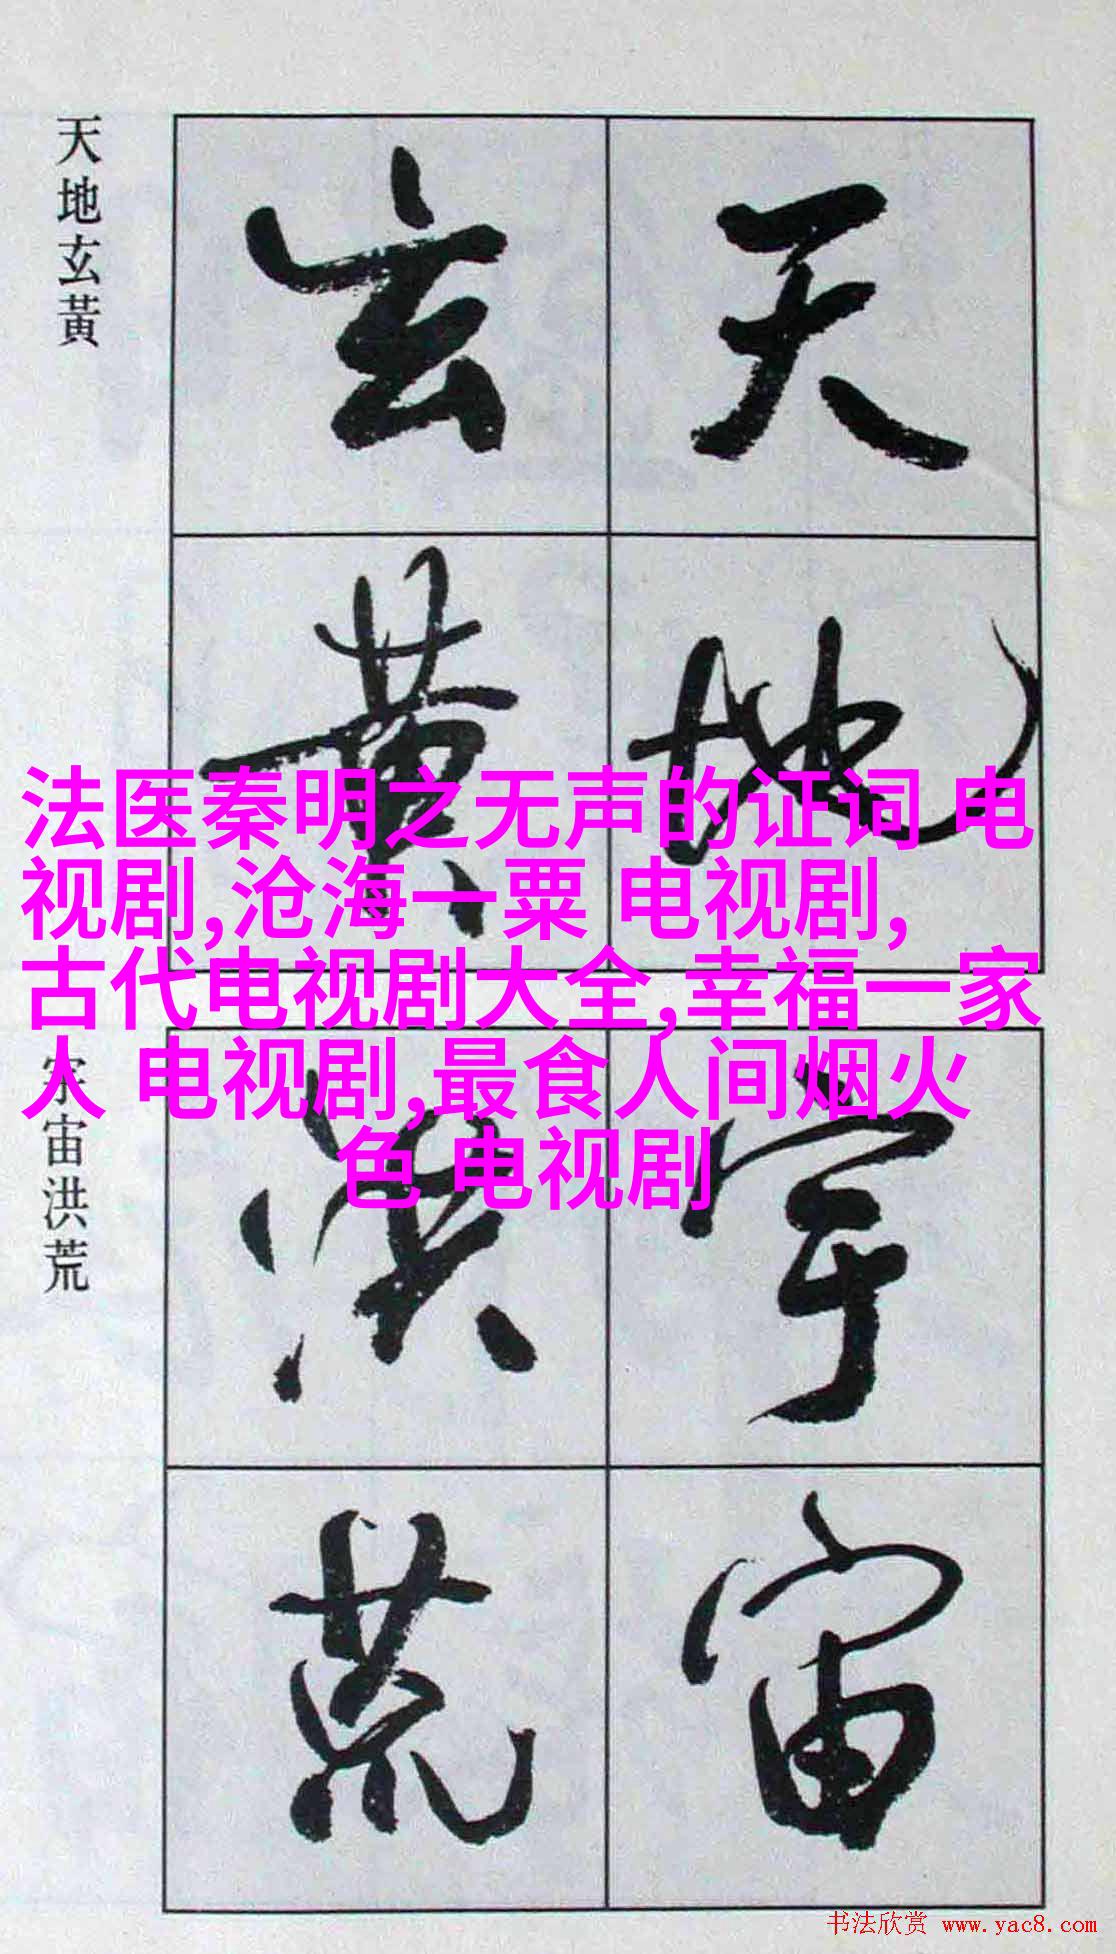 天地玄黃
天地
玄黄
法医秦明之无声的证词 电
视剧,沧海一粟 电视剧,
古代电视剧大全,幸福一家
人 电视剧,最食人间烟火
色 电视剧
宇宙洪荒
宇宙
洪荒
书法欣赏 www.yac8.com